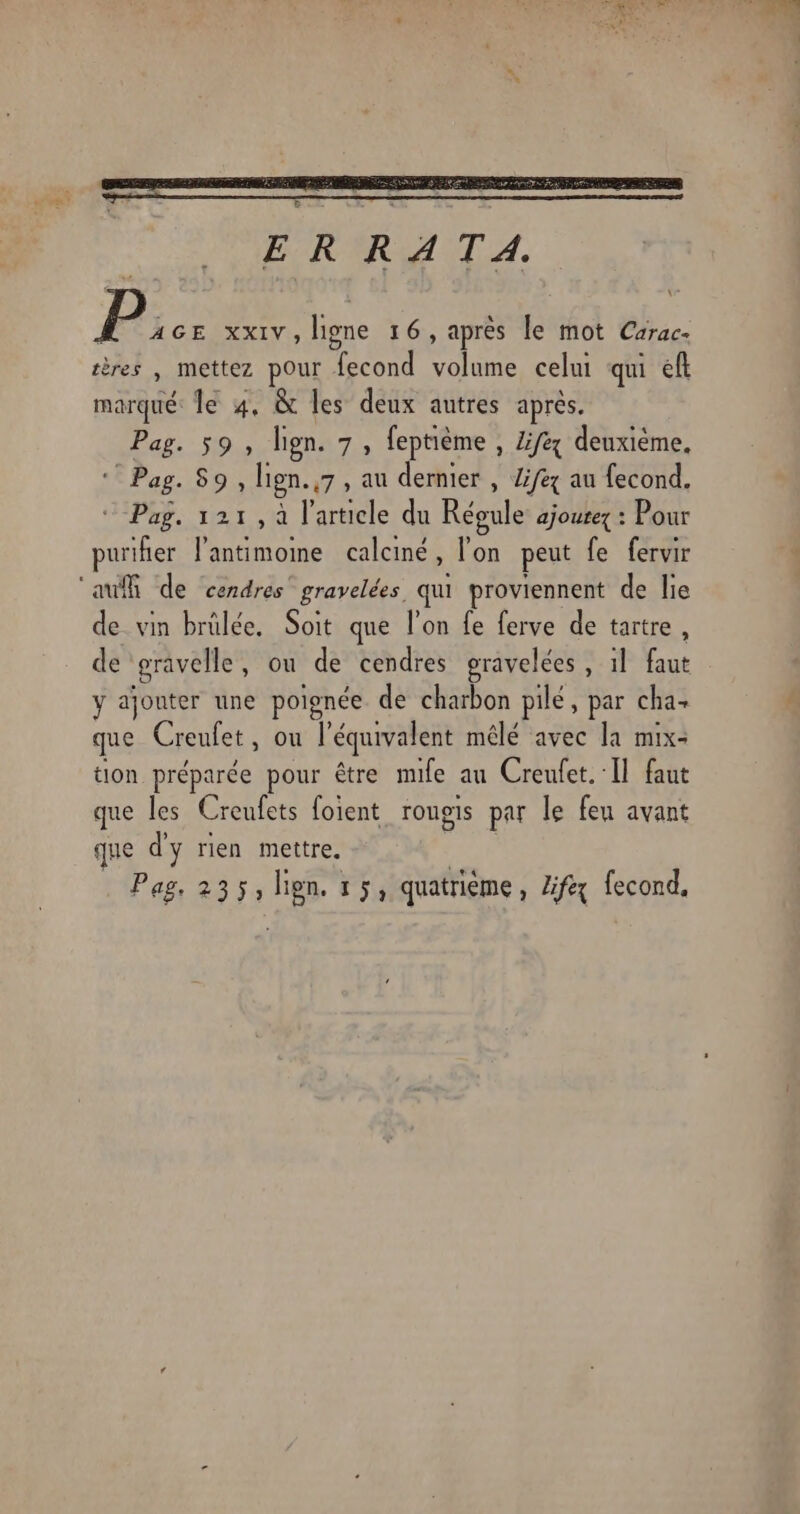 ERRATA.
PAGE XXIV, ligne 16, après le mot Carac-
tères, mettez pour ſecond volume celui qui eſt
marqué le 4, & les deux autres après.
Pag. 59, lign. 7, ſeptième, liſez deuxième.
Pag. 89, lign. 7, au dernier, liſez au ſecond.
Pag. 121, à l'article du Régule ajoutez : Pour
purifier l'antimoine calciné, l'on peut ſe ſervir
auſſi de cendres gravelées qui proviennent de lie
de vin brûlée. Soit que l'on ſe ſerve de tartre,
de gravelle, ou de cendres gravelées, il faut
y ajouter une poignée de charbon pilé, par cha-
que Creuſet, ou l'équivalent mêlé avec la mix-
tion préparée pour être miſe au Creuſet. Il faut
que les Creuſets ſoient rougis par le feu avant
que d'y rien mettre.
Pag. 235, lign. 15, quatrième, liſez ſecond.